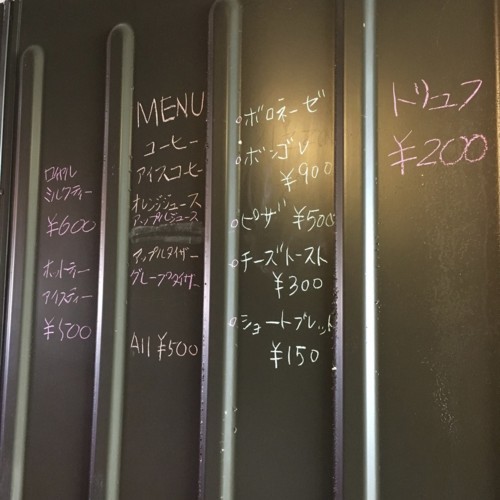 ロイヤル
ミルクティー
¥600
ホットティー
アイスティー
¥500
MENU
コーヒー
アイスコーヒー
オレンジジュース
アップルジュース
アップルタイザー
グレープタイザー
All ¥500
○ボロネーゼ
○ボンゴレ
¥900
○ピザ ¥500
○チーズトースト
¥300
○ショートブレッド
¥150
トリュフ
¥200